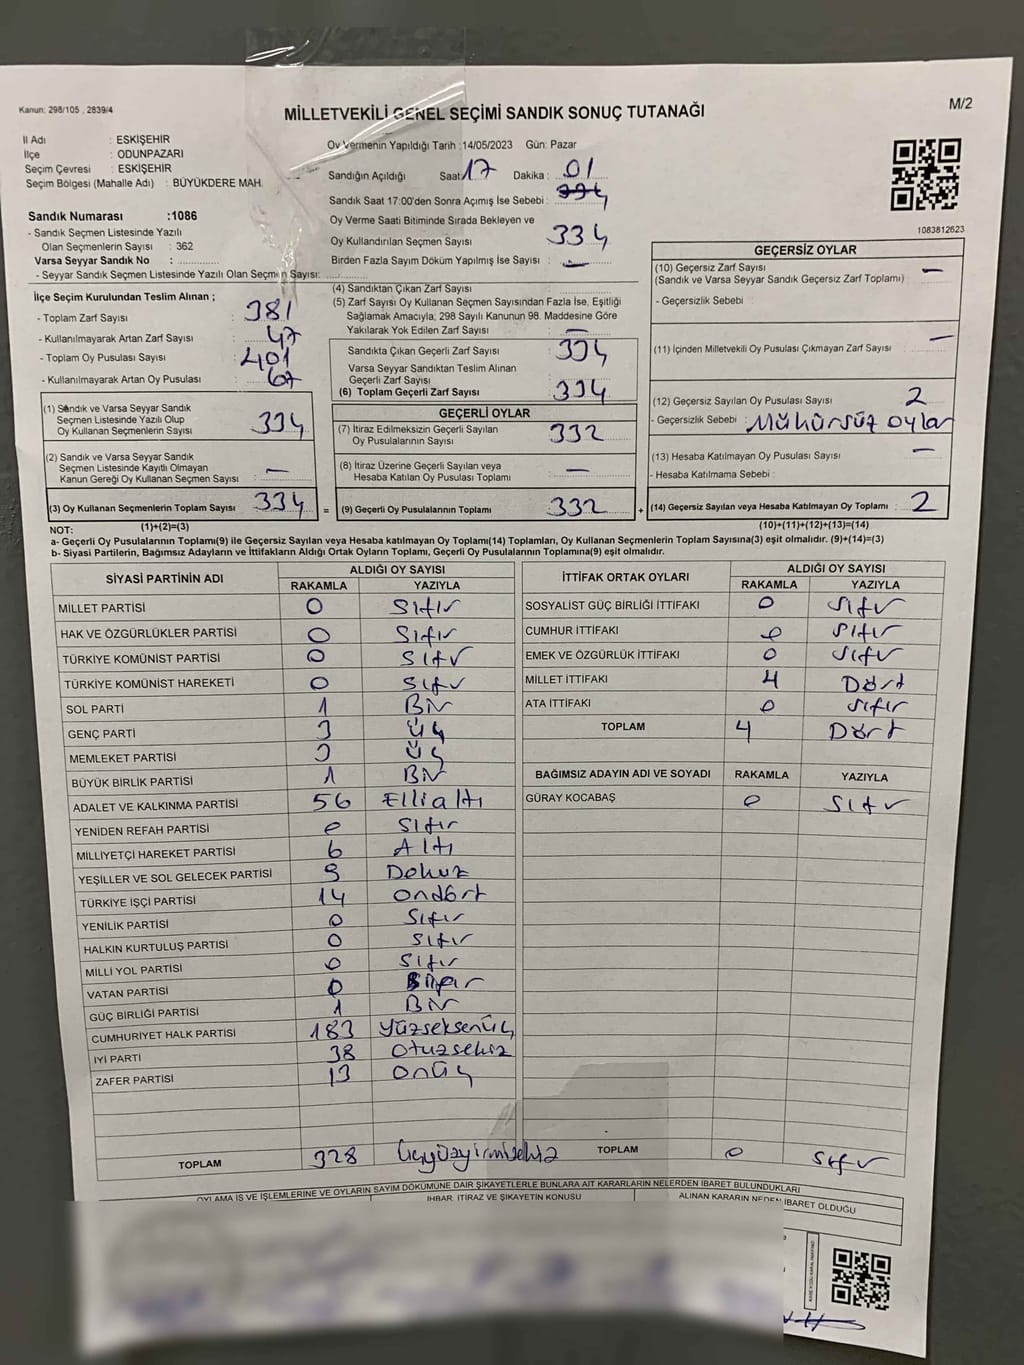 Kanun: 298/105 , 2839/4
M/2
MİLLETVEKİLİ GENEL SEÇİMİ SANDIK SONUÇ TUTANAĞI
İl Adı : ESKİŞEHİR
İlçe : ODUNPAZARI
Seçim Çevresi : ESKİŞEHİR
Seçim Bölgesi (Mahalle Adı) : BÜYÜKDERE MAH.
Sandık Numarası :1086
- Sandık Seçmen Listesinde Yazılı
Olan Seçmenlerin Sayısı : 362
Varsa Seyyar Sandık No :
- Seyyar Sandık Seçmen Listesinde Yazılı Olan Seçmen Sayısı:
Oy Vermenin Yapıldığı Tarih :14/05/2023 Gün: Pazar
Sandığın Açıldığı Saat: 17 Dakika : 01
Sandık Saat 17:00'den Sonra Açımış İse Sebebi :
Oy Verme Saati Bitiminde Sırada Bekleyen ve
Oy Kullandırılan Seçmen Sayısı 334
Birden Fazla Sayım Döküm Yapılmış İse Sayısı : —
1083812623
İlçe Seçim Kurulundan Teslim Alınan ;
- Toplam Zarf Sayısı : 381
- Kullanılmayarak Artan Zarf Sayısı : 47
- Toplam Oy Pusulası Sayısı : 401
- Kullanılmayarak Artan Oy Pusulası : 67
(1) Sandık ve Varsa Seyyar Sandık
Seçmen Listesinde Yazılı Olup
Oy Kullanan Seçmenlerin Sayısı : 334
(2) Sandık ve Varsa Seyyar Sandık
Seçmen Listesinde Kayıtlı Olmayan
Kanun Gereği Oy Kullanan Seçmen Sayısı : —
(3) Oy Kullanan Seçmenlerin Toplam Sayısı : 334
(1)+(2)=(3)
(4) Sandıktan Çıkan Zarf Sayısı :
(5) Zarf Sayısı Oy Kullanan Seçmen Sayısından Fazla İse, Eşitliği
Sağlamak Amacıyla; 298 Sayılı Kanunun 98. Maddesine Göre
Yakılarak Yok Edilen Zarf Sayısı : —
Sandıkta Çıkan Geçerli Zarf Sayısı : 334
Varsa Seyyar Sandıktan Teslim Alınan
Geçerli Zarf Sayısı :
(6) Toplam Geçerli Zarf Sayısı : 334
GEÇERLİ OYLAR
(7) İtiraz Edilmeksizin Geçerli Sayılan
Oy Pusulalarının Sayısı : 332
(8) İtiraz Üzerine Geçerli Sayılan veya
Hesaba Katılan Oy Pusulası Toplamı : —
= (9) Geçerli Oy Pusulalarının Toplamı : 332 +
GEÇERSİZ OYLAR
(10) Geçersiz Zarf Sayısı : —
(Sandık ve Varsa Seyyar Sandık Geçersiz Zarf Toplamı)
- Geçersizlik Sebebi :
(11) İçinden Milletvekili Oy Pusulası Çıkmayan Zarf Sayısı : —
(12) Geçersiz Sayılan Oy Pusulası Sayısı : 2
- Geçersizlik Sebebi : Mühürsüz oylar
(13) Hesaba Katılmayan Oy Pusulası Sayısı : —
- Hesaba Katılmama Sebebi :
(14) Geçersiz Sayılan veya Hesaba Katılmayan Oy Toplamı : 2
(10)+(11)+(12)+(13)=(14)
NOT:
a- Geçerli Oy Pusulasının Toplamı(9) ile Geçersiz Sayılan veya Hesaba katılmayan Oy Toplamı(14) Toplamları, Oy Kullanan Seçmenlerin Toplam Sayısına(3) eşit olmalıdır. (9)+(14)=(3)
b- Siyasi Partilerin, Bağımsız Adayların ve İttifakların Aldığı Ortak Oyların Toplamı, Geçerli Oy Pusulalarının Toplamına(9) eşit olmalıdır.
SİYASİ PARTİNİN ADI ALDIĞI OY SAYISI
RAKAMLA YAZIYLA
MİLLET PARTİSİ 0 Sıfır
HAK VE ÖZGÜRLÜKLER PARTİSİ 0 Sıfır
TÜRKİYE KOMÜNİST PARTİSİ 0 Sıfır
TÜRKİYE KOMÜNİST HAREKETİ 0 Sıfır
SOL PARTİ 1 Bir
GENÇ PARTİ 3 Üç
MEMLEKET PARTİSİ 3 Üç
BÜYÜK BİRLİK PARTİSİ 1 Bir
ADALET VE KALKINMA PARTİSİ 56 Elli altı
YENİDEN REFAH PARTİSİ 0 Sıfır
MİLLİYETÇİ HAREKET PARTİSİ 6 Altı
YEŞİLLER VE SOL GELECEK PARTİSİ 9 Dokuz
TÜRKİYE İŞÇİ PARTİSİ 14 ondört
YENİLİK PARTİSİ 0 Sıfır
HALKIN KURTULUŞ PARTİSİ 0 Sıfır
MİLLİ YOL PARTİSİ 0 Sıfır
VATAN PARTİSİ 0 Sıfır
GÜÇ BİRLİĞİ PARTİSİ 1 Bir
CUMHURİYET HALK PARTİSİ 183 Yüzseksenüç
İYİ PARTİ 38 Otuzsekiz
ZAFER PARTİSİ 13 onüç
TOPLAM 328 Üçyüzyirmisekiz
İTTİFAK ORTAK OYLARI ALDIĞI OY SAYISI
RAKAMLA YAZIYLA
SOSYALİST GÜÇ BİRLİĞİ İTTİFAKI 0 Sıfır
CUMHUR İTTİFAKI 0 Sıfır
EMEK VE ÖZGÜRLÜK İTTİFAKI 0 Sıfır
MİLLET İTTİFAKI 4 Dört
ATA İTTİFAKI 0 Sıfır
TOPLAM 4 Dört
BAĞIMSIZ ADAYIN ADI VE SOYADI RAKAMLA YAZIYLA
GÜRAY KOCABAŞ 0 Sıfır
TOPLAM 0 Sıfır
OYLAMA İŞ VE İŞLEMLERİNE VE OYLARIN SAYIM DÖKÜMÜNE DAİR ŞİKAYETLERLE BUNLARA AİT KARARLARIN NELERDEN İBARET BULUNDUKLARI
İHBAR, İTİRAZ VE ŞİKAYETİN KONUSU ALINAN KARARIN NEDEN İBARET OLDUĞU